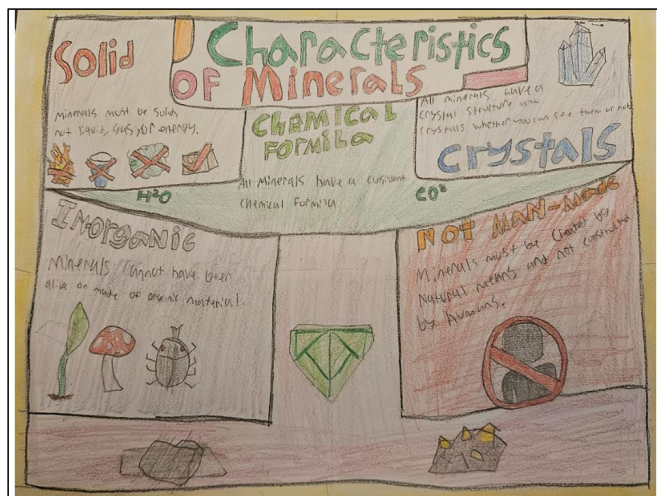 Characteristics
OF Minerals
Solid
Minerals must be solids
not liquid, gas, or energy.
CHEMICAL
FORMILA
All Minerals have a
chemical formila
H²O
CO²
All minerals have a
crystal structure
crystals whether you can see them or not.
Crystals
Inorganic
Minerals cannot have been
alive or made of organic material.
NOT MAN-Made
Minerals must be created by
Natural means and not constructed
by humans.